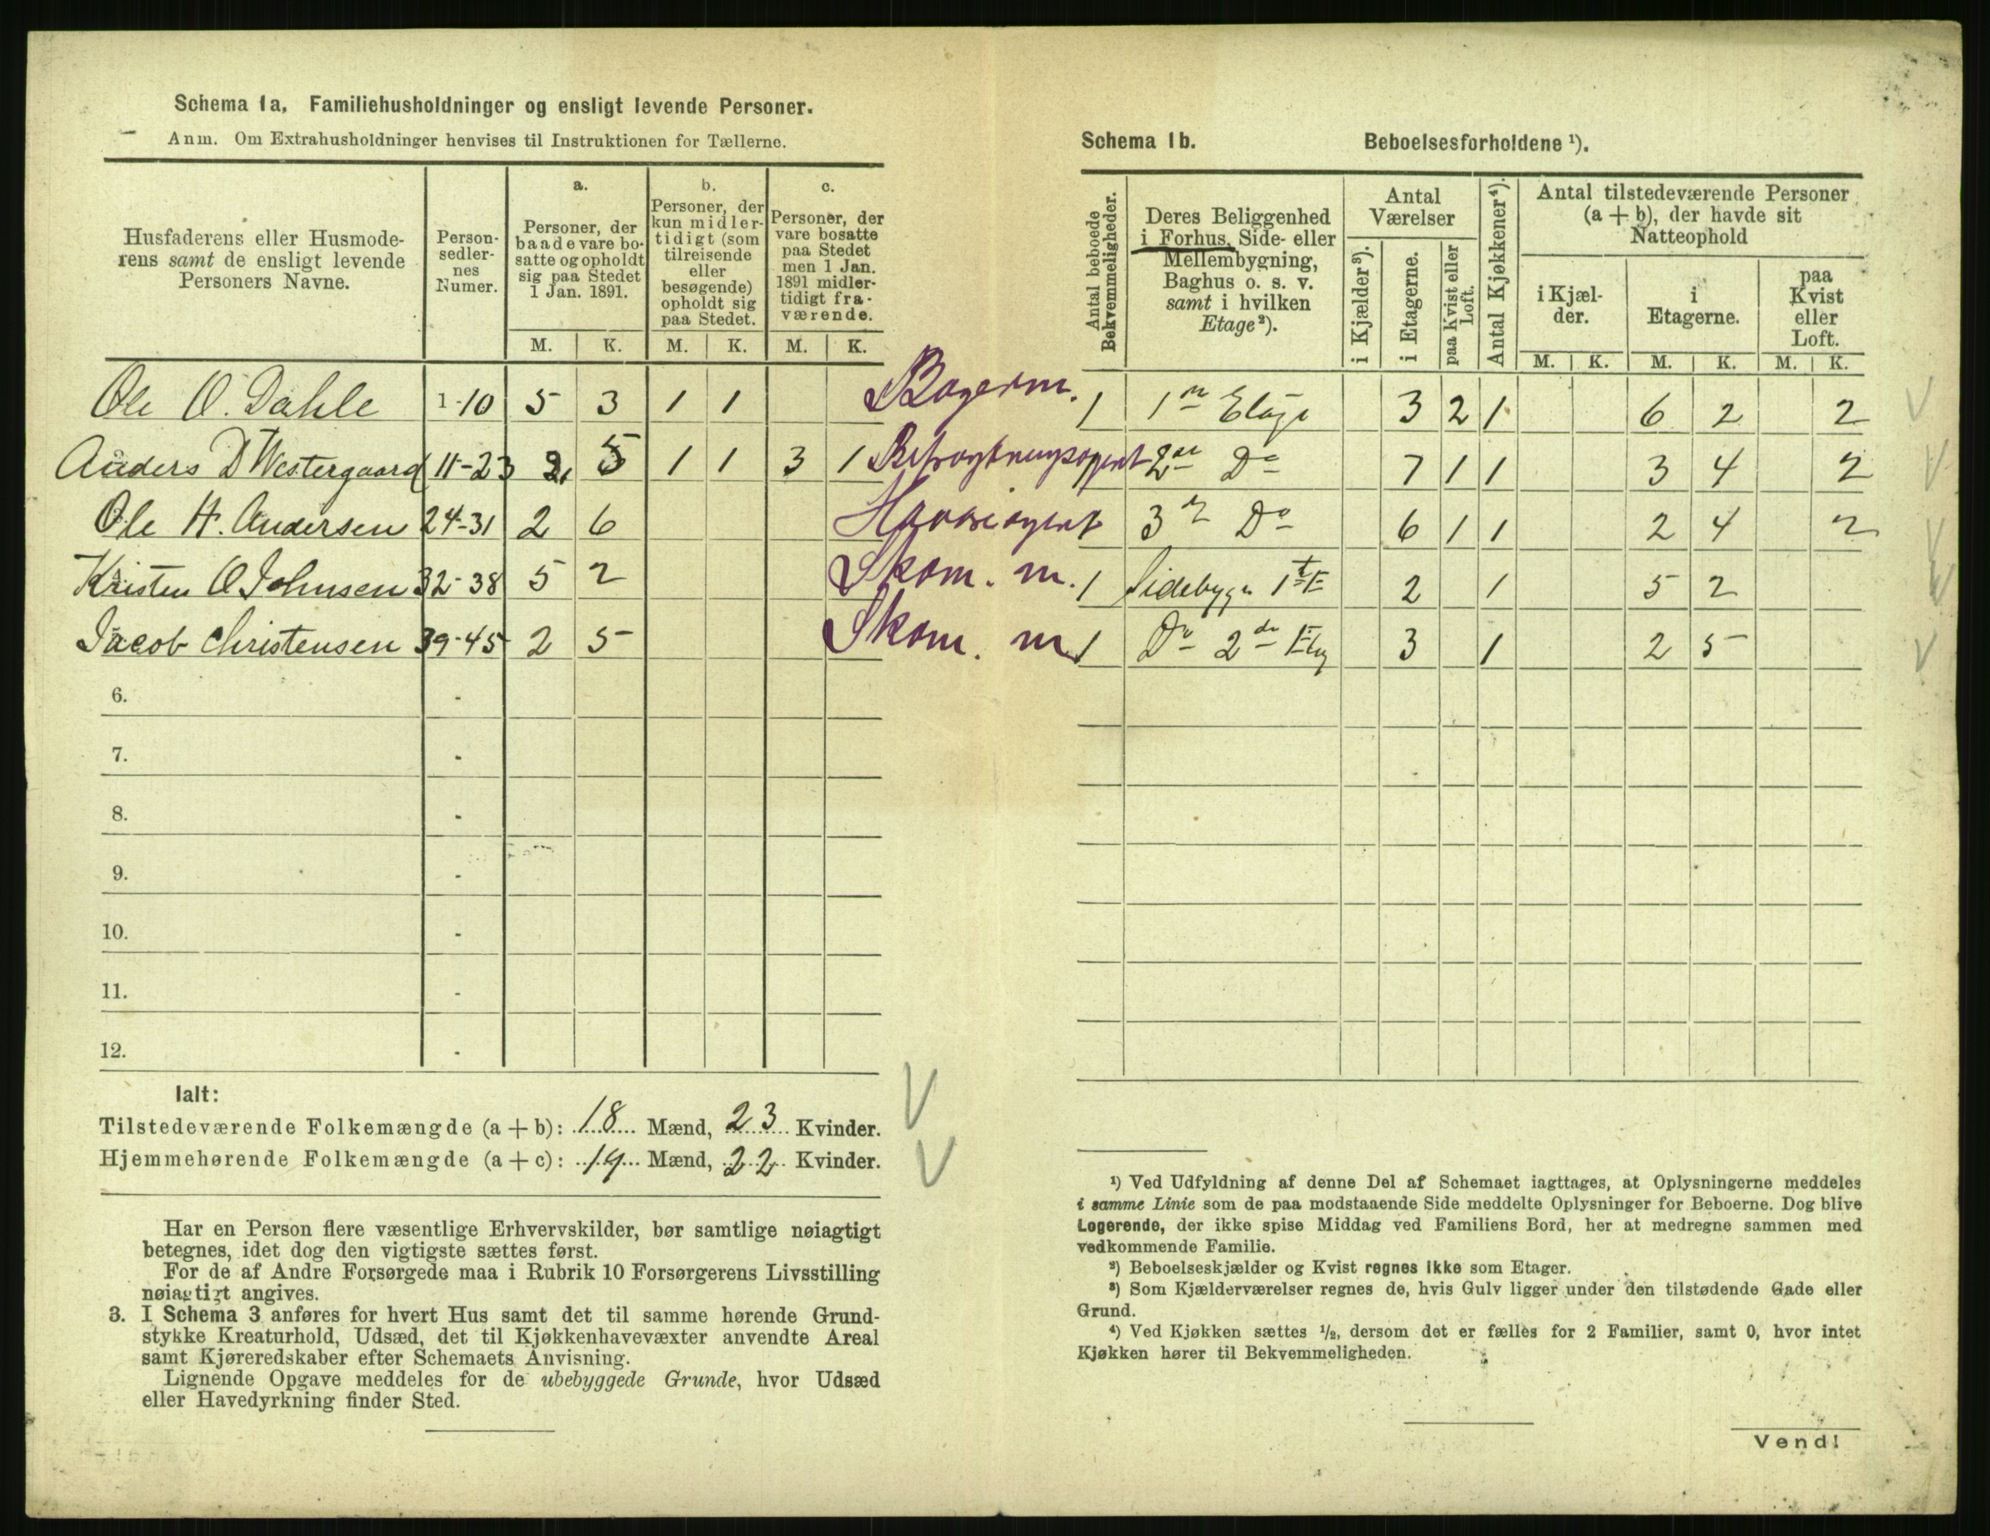 Schema 1a. Familiehusholdninger og ensligt levende Personer.
Anm. Om Extrahusholdninger henvises til Instruktionen for Tællerne.
Husfaderens eller Husmoderens samt de ensligt levende Personers Navne.
Person-sedler-nes Numer.
a.
Personer, der baade vare bosatte og opholdt sig paa Stedet 1 Jan. 1891.
b.
Personer, der kun midlertidigt (som tilreisende eller besøgende) opholdt sig paa Stedet.
c.
Personer, der vare bosatte paa Stedet men 1 Jan. 1891 midlertidigt fraværende.
M. K. M. K. M. K.
Ole O. Dahle 1-10 5 3 1 1 Bagerm.
Anders D Westergaard 11-23 2 5 1 1 3 1 Befragtningsagent
Ole H. Andersen 24-31 2 6
Kristen O Johnsen 32-38 5 2 Skom. m.
Jacob Christensen 39-45 2 5 Skom. m.
6. -
7. -
8. -
9. -
10. -
11. -
12. -
Ialt:
Tilstedeværende Folkemængde (a + b): 18 Mænd, 23 Kvinder.
Hjemmehørende Folkemængde (a + c): 19 Mænd, 22 Kvinder.
Har en Person flere væsentlige Erhvervskilder, bør samtlige nøiagtigt
betegnes, idet dog den vigtigste sættes først.
For de af Andre Forsørgede maa i Rubrik 10 Forsørgerens Livsstilling
nøiagtigt angives.
3. I Schema 3 anføres for hvert Hus samt det til samme hørende Grund-
stykke Kreaturhold, Udsæd, det til Kjøkkenhavevæxter anvendte Areal
samt Kjøreredskaber efter Schemaets Anvisning.
Lignende Opgave meddeles for de ubebyggede Grunde, hvor Udsæd
eller Havedyrkning finder Sted.
Schema 1b. Beboelsesforholdene ¹).
Antal beboede Bekvemmeligheder.
Deres Beliggenhed i Forhus, Side- eller Mellembygning, Baghus o. s. v. samt i hvilken Etage²).
Antal Værelser
i Kjælder³).
i Etagerne.
paa Kvist eller Loft.
Antal Kjøkkener⁴).
Antal tilstedeværende Personer (a + b), der havde sit Natteophold
i Kjælder.
i Etagerne.
paa Kvist eller Loft.
M. K. M. K. M. K.
1 1ste Etage 3 2 1 6 2 2
1 2den Do 7 1 1 3 4 2
3die Do 6 1 1 2 4 2
1 Sidebygn 1st E 2 1 5 2
1 Do 2den Etg 3 1 2 5
¹) Ved Udfyldning af denne Del af Schemaet iagttages, at Oplysningerne meddeles
i samme Linie som de paa modstaaende Side meddelte Oplysninger for Beboerne. Dog blive
Logerende, der ikke spise Middag ved Familiens Bord, her at medregne sammen med
vedkommende Familie.
²) Beboelseskjælder og Kvist regnes ikke som Etager.
³) Som Kjælderværelser regnes de, hvis Gulv ligger under den tilstødende Gade eller
Grund.
⁴) Ved Kjøkken sættes ½, dersom det er fælles for 2 Familier, samt 0, hvor intet
Kjøkken hører til Bekvemmeligheden.
Vend!